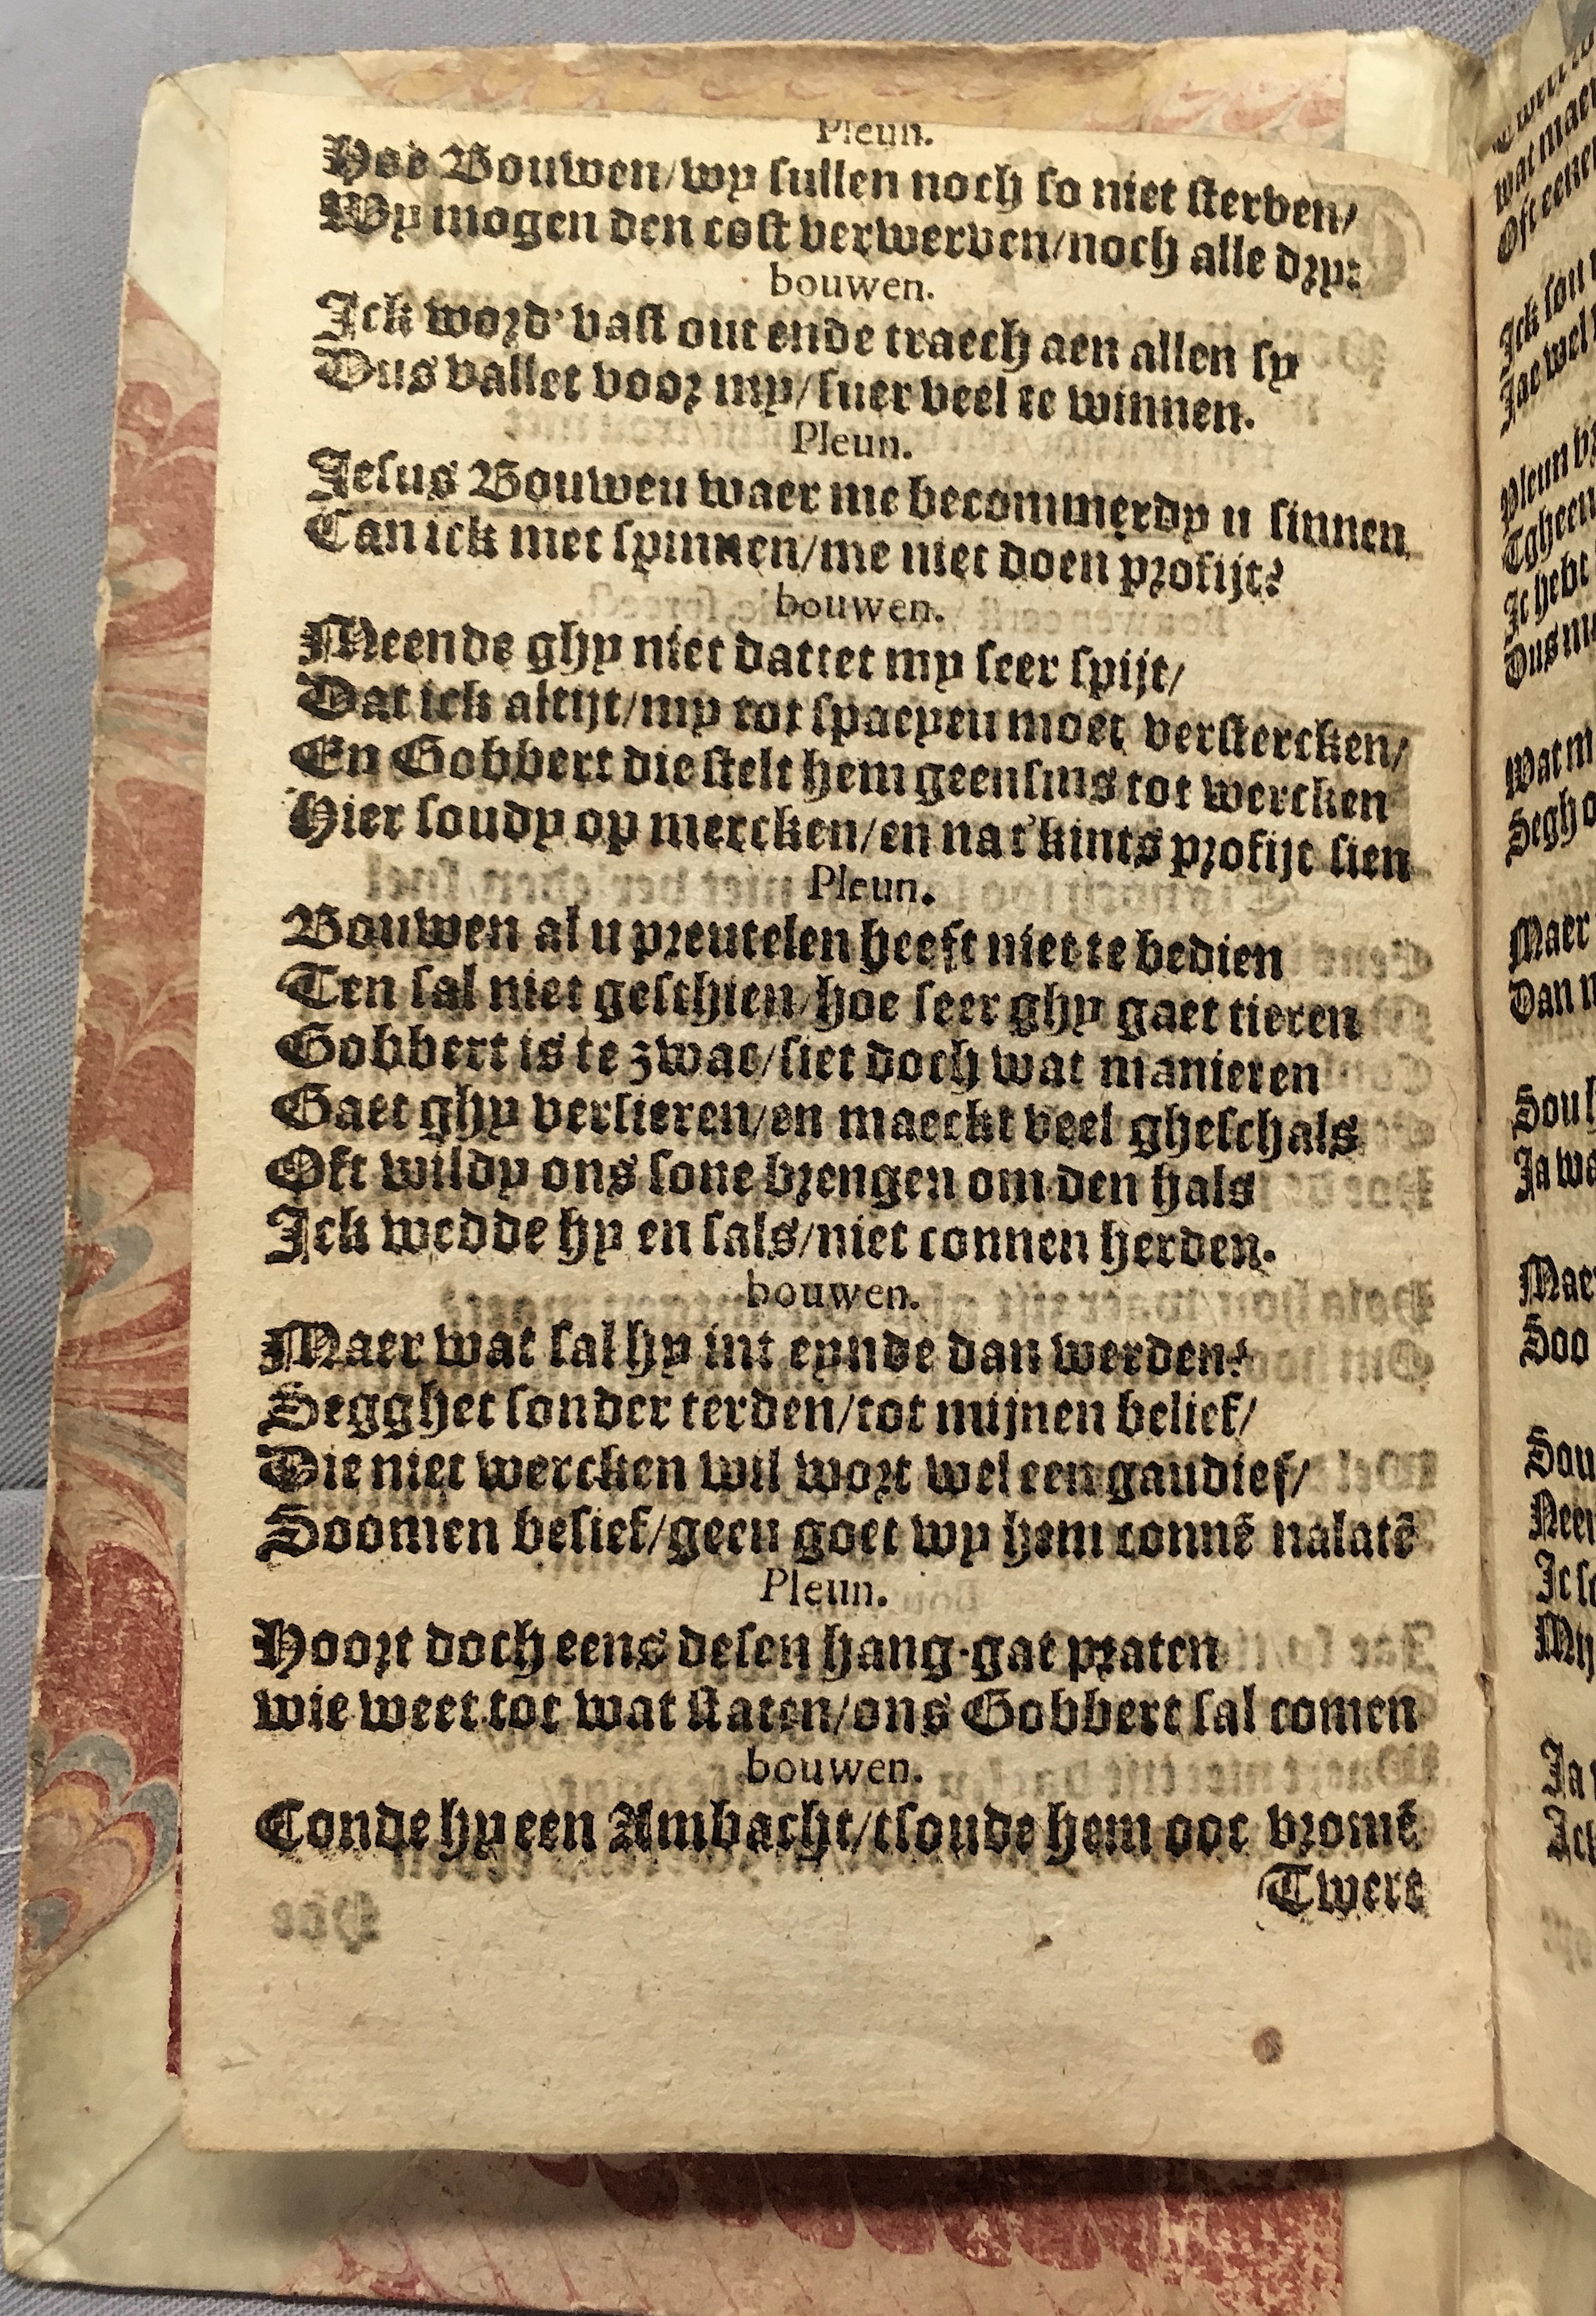 Pleun.
Hoe Bouwen/wy sullen noch so niet sterven/
Wy mogen den cost verwerven/noch alle dry:
bouwen.
Ick word' vast out ende traech aen allen sy
Dus vallet voor my/suer veel te winnen.
Pleun.
Jesus Bouwen waer me becommerdy u sinnen
Can ick met spinnen/me niet doen profijt?
bouwen.
Meende ghy niet dattet my seer spijt/
Dat ick altijt/my tot spaeyen moet verstercken/
En Gobbert die stelt hem geensins tot wercken
Hier soudy op mercken/en na t'kints profijt sien
Pleun.
Bouwen al u preutelen heeft niet te bedien
Ten sal niet geschien/hoe seer ghy gaet tieren
Gobbert is te zwac/siet doch wat manieren
Gaet ghy versieren/en maeckt veel gheschals
Oft wildy ons sone brengen om den hals
Ick wedde hy en sals/niet connen herden.
bouwen.
Maer wat sal hy int eynde dan werden?
Segghet sonder terden/tot mijnen belief/
Die niet wercken wil wort wel een gaudief/
Soomen besief/geen goet wy hem connē nalatē
Pleun.
Hoort doch eens desen hang-gat praten
wie weet tot wat staten/ons Gobbert sal comen
bouwen.
Conde hy een Ambacht/tsoude hem ooc vromē
Twere
wat maer
Oft eenen
Ick sou
Jae wel
Pleun
Tgheen
Ic hebt
Dus
Wat
Segh
Maer
Dan
Sou
Ja wa
Maer
Soo
Sou
Neen
Ja